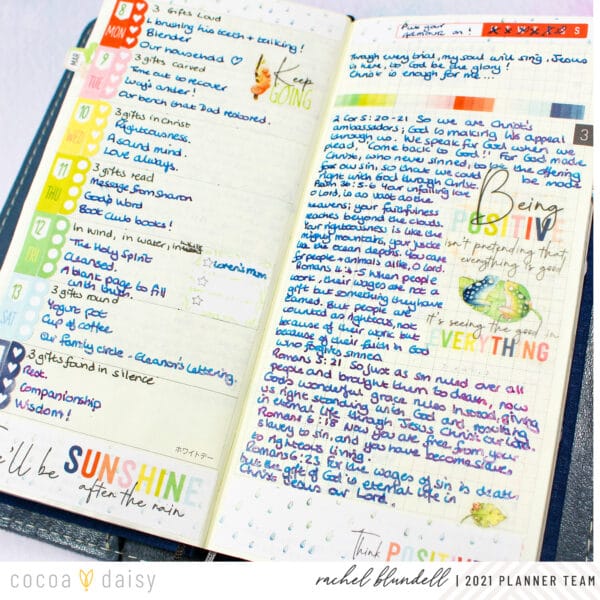 8
MON
3 Gifts Loud
L brushing his teeth + talking!
Blender
Our household ♡
MAR
9
TUE
3 gifts carved
Time out to recover
Lucy's amber!
Our bench that Dad restored.
Keep
GOING
10
WED
3 gifts in Christ
Righteousness.
A sound mind.
Love always.
11
THU
3 gifts read
Message from Sharon
God's Word
Book Club books!
12
FRI
In wind, in water, in
The Holy Spirit
Cleansed.
A blank page to fill
with truth.
☆ Loren's Mum
☆
☆
13
SAT
3 gifts round
Yogurt pot
Cup of coffee
Our family circle - Eleanor's Lettering.
3 gifts found in silence
Rest.
Companionship
Wisdom!
ホワイトデー
e'll be SUNSHINE
after the rain
S
Through every trial, my soul will sing, Jesus
is here, to God be the glory!
Christ is enough for me...
3
2 Cor 5:20-21 So we are Christ's
ambassadors; God is making his appeal
through us. We speak for God when we
plead, "Come back to God!" For God made
Christ, who never sinned, to be the offering
for our sin, so that we could be made
right with God through Christ.
Psalm 36:5-6 Your unfailing love
O Lord, is as vast as the
heavens; your faithfulness
reaches beyond the clouds.
Your righteousness is like the
mighty mountains, your justice
like the ocean depths. You care
for people + animals alike, O Lord.
Romans 4:4-5 When people
work, their wages are not a
gift but something they have
earned. But people are
counted as righteous, not
because of their work but
because of their faith in God
who forgives sinners.
Being
POSITIVE
isn't pretending that
everything is good
it's seeing the good in
EVERYTHING
Romans 5:21. So just as sin ruled over all
people and brought them to death, now
God's wonderful grace rules instead, giving
us right standing with God and resulting
in eternal life through Jesus Christ our Lord.
Romans 6:18 Now you are free from your
slavery to sin, and you have become slaves
to righteous living.
Romans 6:23 For the wages of sin is death,
but the gift of God is eternal life in
Christ Jesus our Lord.
Think POSITIVE
cocoa daisy
rachel blundell | 2021 PLANNER TEAM